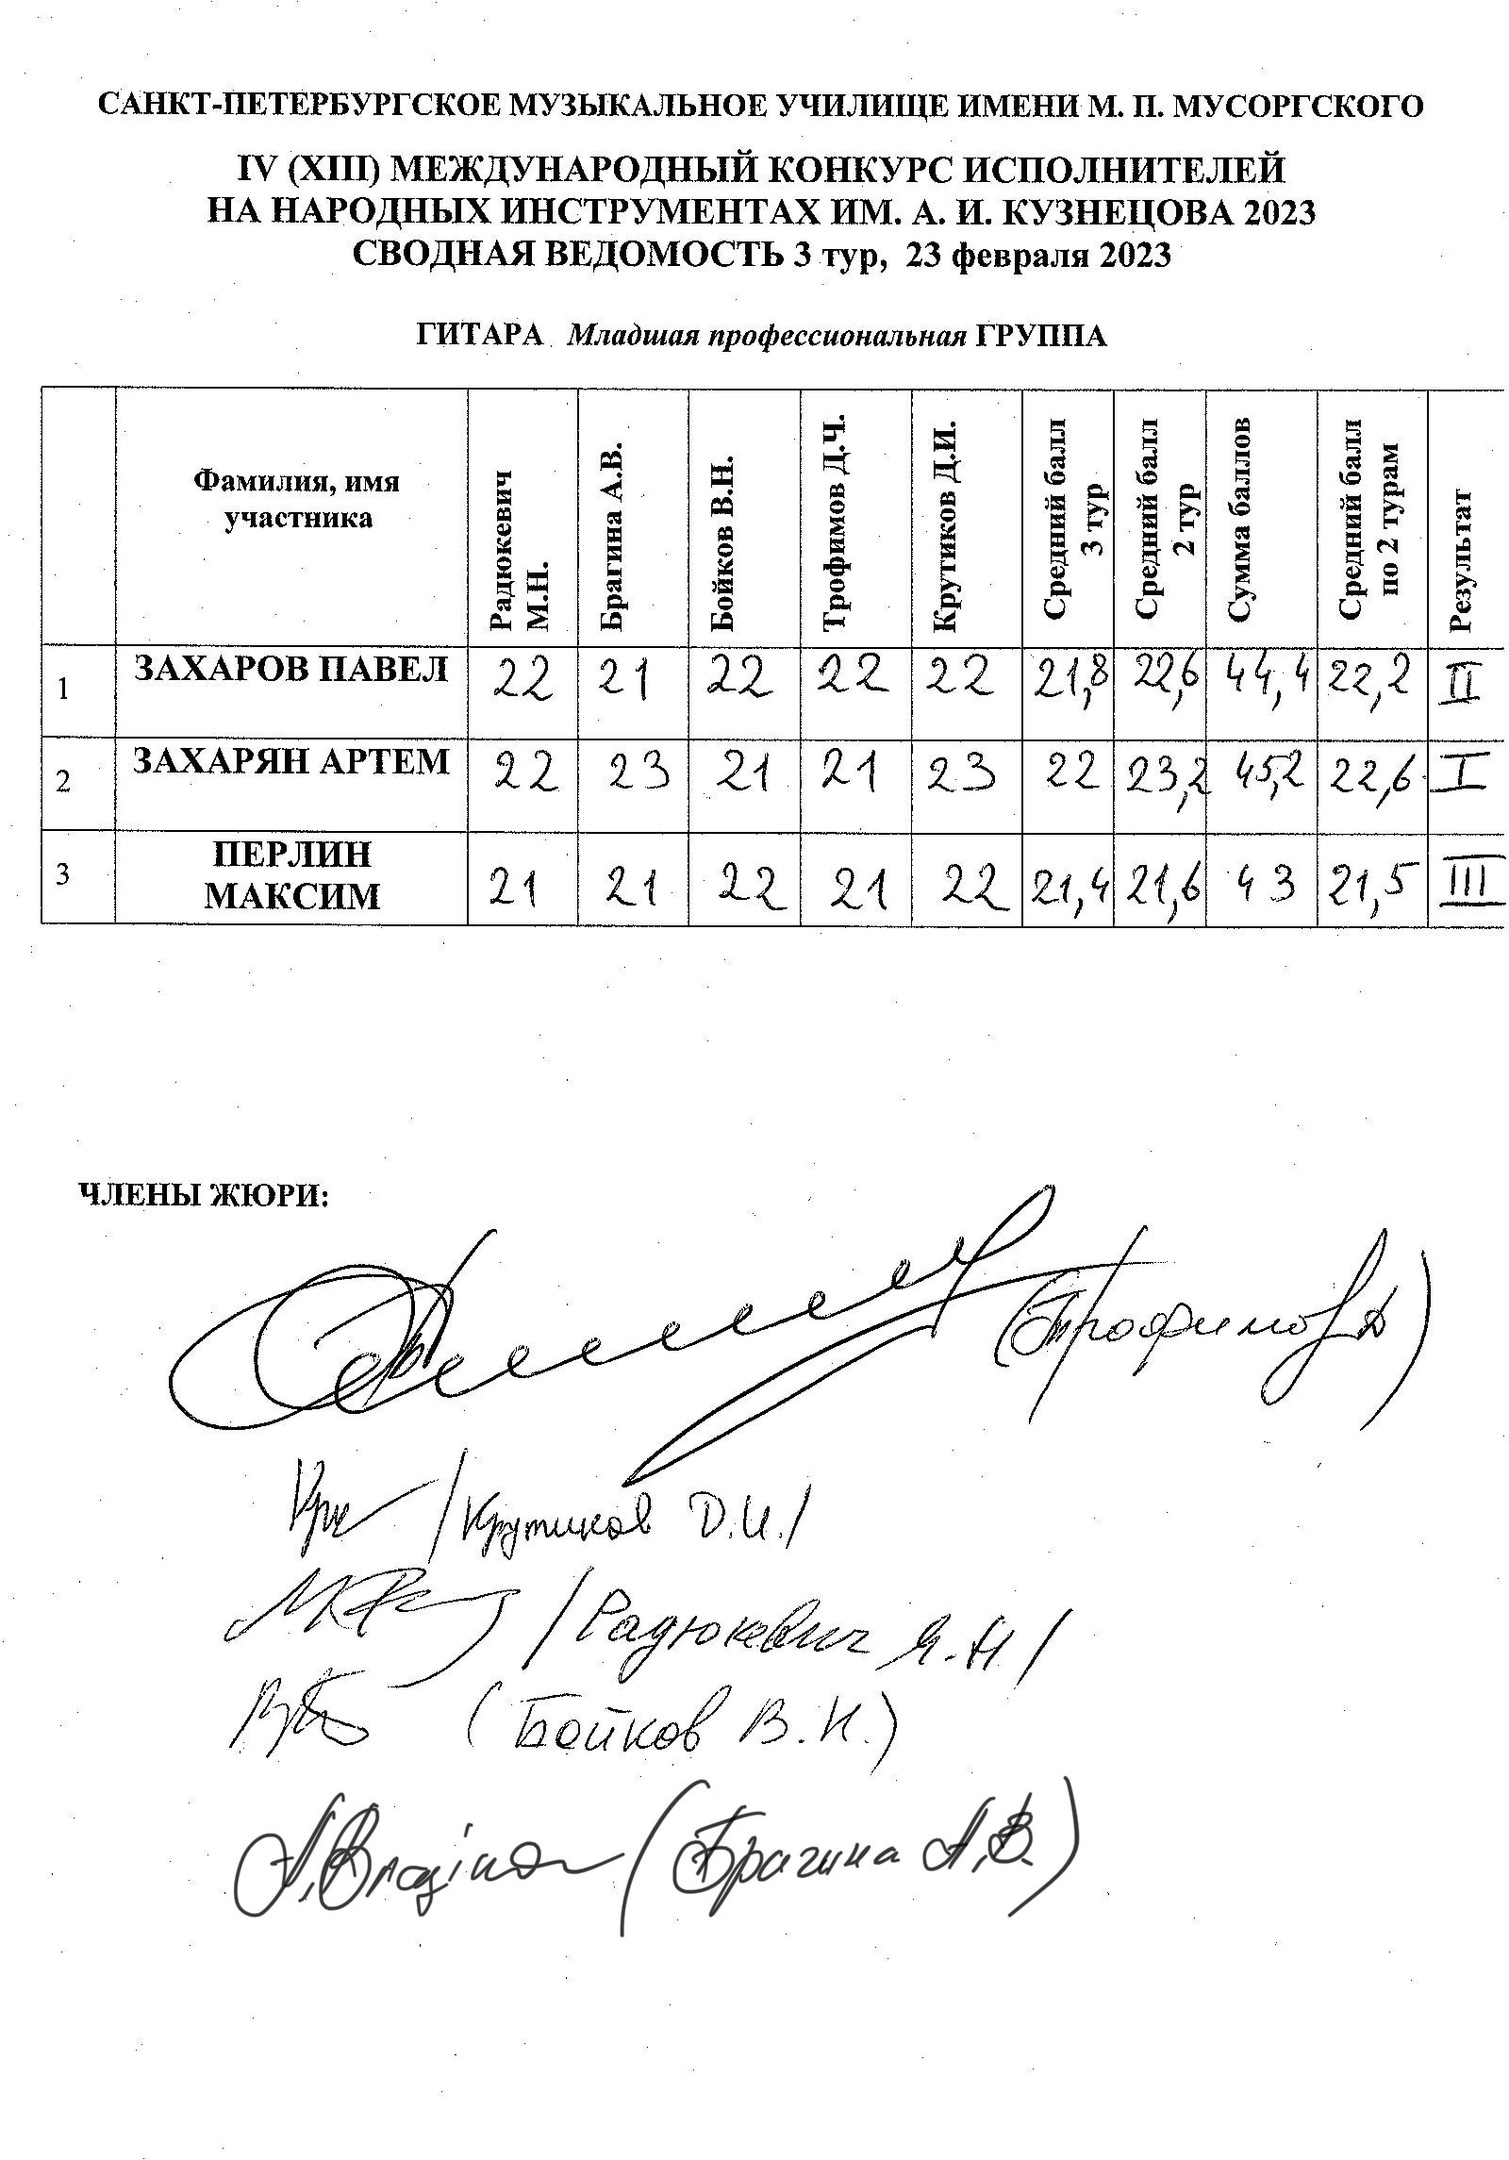 САНКТ-ПЕТЕРБУРГСКОЕ МУЗЫКАЛЬНОЕ УЧИЛИЩЕ ИМЕНИ М. П. МУСОРГСКОГО
IV (XIII) МЕЖДУНАРОДНЫЙ КОНКУРС ИСПОЛНИТЕЛЕЙ
НА НАРОДНЫХ ИНСТРУМЕНТАХ ИМ. А. И. КУЗНЕЦОВА 2023
СВОДНАЯ ВЕДОМОСТЬ 3 тур, 23 февраля 2023
ГИТАРА Младшая профессиональная ГРУППА
Фамилия, имя
участника
Радюкевич
М.Н.
Брагина А.В.
Бойков В.Н.
Трофимов Д.Ч.
Крутиков Д.И.
Средний балл
3 тур
Средний балл
2 тур
Сумма баллов
Средний балл
по 2 турам
Результат
1 ЗАХАРОВ ПАВЕЛ 22 21 22 22 22 21,8 22,6 44,4 22,2 II
2 ЗАХАРЯН АРТЕМ 22 23 21 21 23 22 23,2 45,2 22,6 I
3 ПЕРЛИН
МАКСИМ 21 21 22 21 22 21,4 21,6 43 21,5 III
ЧЛЕНЫ ЖЮРИ:
(Трофимов Д)
/Крутиков Д.И./
/Радюкевич М.Н/
(Бойков В.Н.)
(Брагина А.В.)